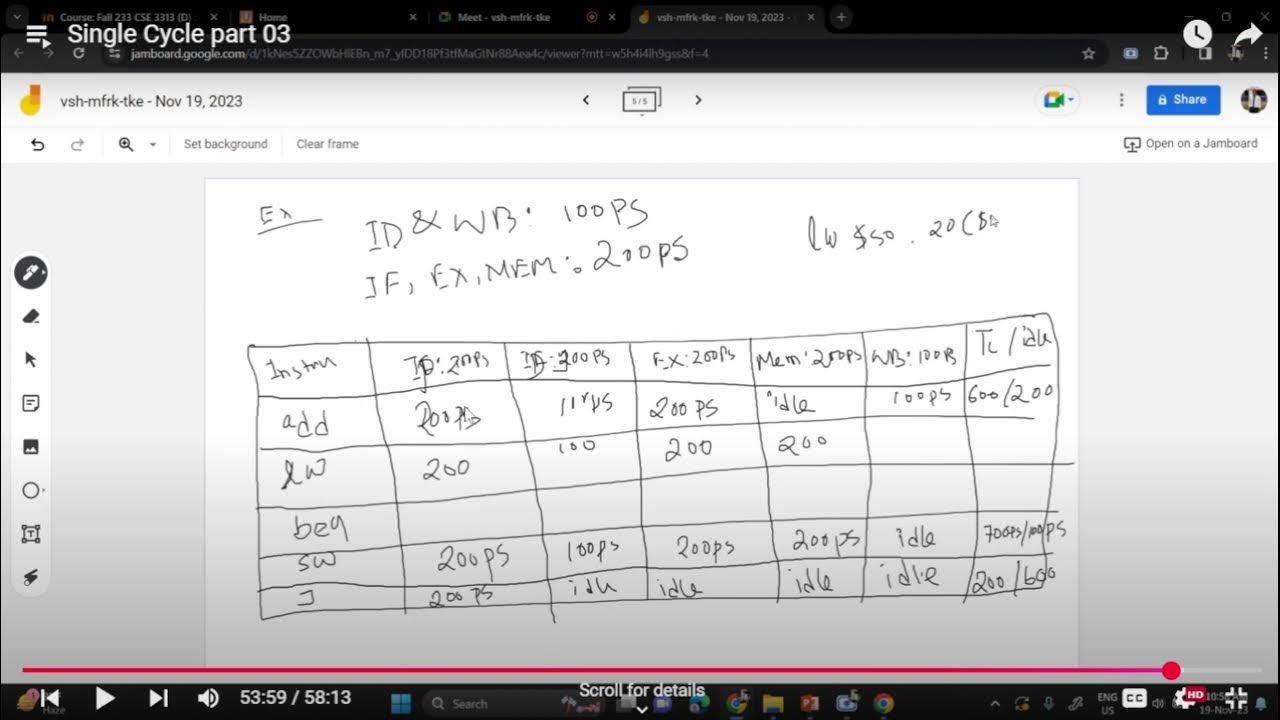 Course: Fall 233 CSE 3313 (D)
Home
Meet - vsh-mfrk-tke
vsh-mfrk-tke - Nov 19, 2023 -
Single Cycle part 03
jamboard.google.com
vsh-mfrk-tke - Nov 19, 2023
5/5
Share
Set background
Clear frame
Open on a Jamboard
Ex
ID & WB: 100PS
lw $s0 . 20($
IF, EX, MEM: 200PS
Instru 200ps 200ps EX:200ps Mem:200ps WB:100PS Tc/idle
add 200ps 200ps idle 100ps 600/200
lw 200 100 200 200
beq
sw 200ps 100ps 200ps 200ps idle 700ps/100ps
J 200ps idle idle idle idle 200/600
53:59 / 58:13
Scroll for details
Search
ENG
US
CC
HD
19-Nov-23